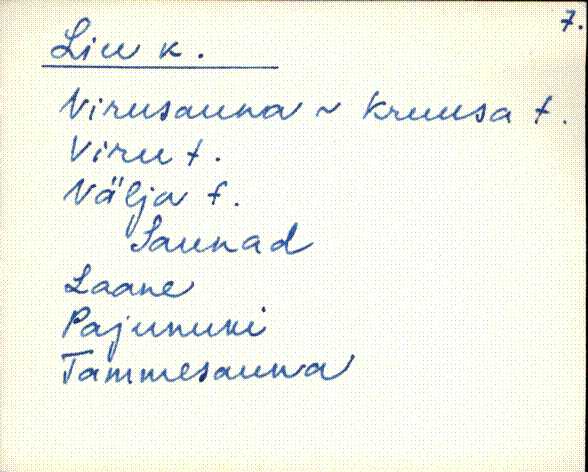 7.
Liu k.
Virusauna ~ Kruusa t.
Viru t.
Välja t.
Saunad
Laane
Pajunuki
Tammesauna